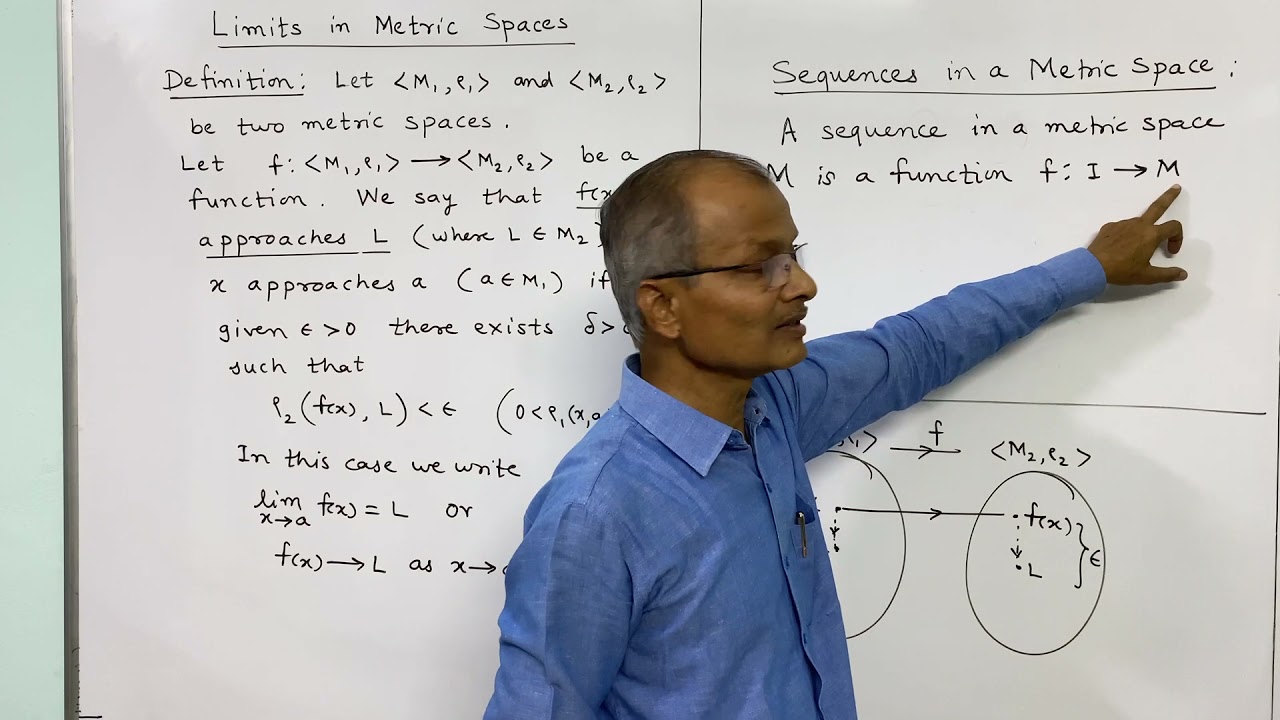 Limits in Metric Spaces
Definition: Let <M₁,ρ₁> and <M₂,ρ₂>
be two metric spaces.
Let f: <M₁,ρ₁> → <M₂,ρ₂> be a
function. We say that f(x
approaches L (where L ∈ M₂)
x approaches a (a ∈ M₁) if
given ϵ > 0 there exists δ >
such that
ρ₂(f(x), L) < ϵ (0 < ρ₁(x,a
In this case we write
lim x→a f(x) = L or
f(x) → L as x →
Sequences in a Metric Space:
A sequence in a metric space
M is a function f: I → M
f <M₂,ρ₂>
f(x)
L
ϵ